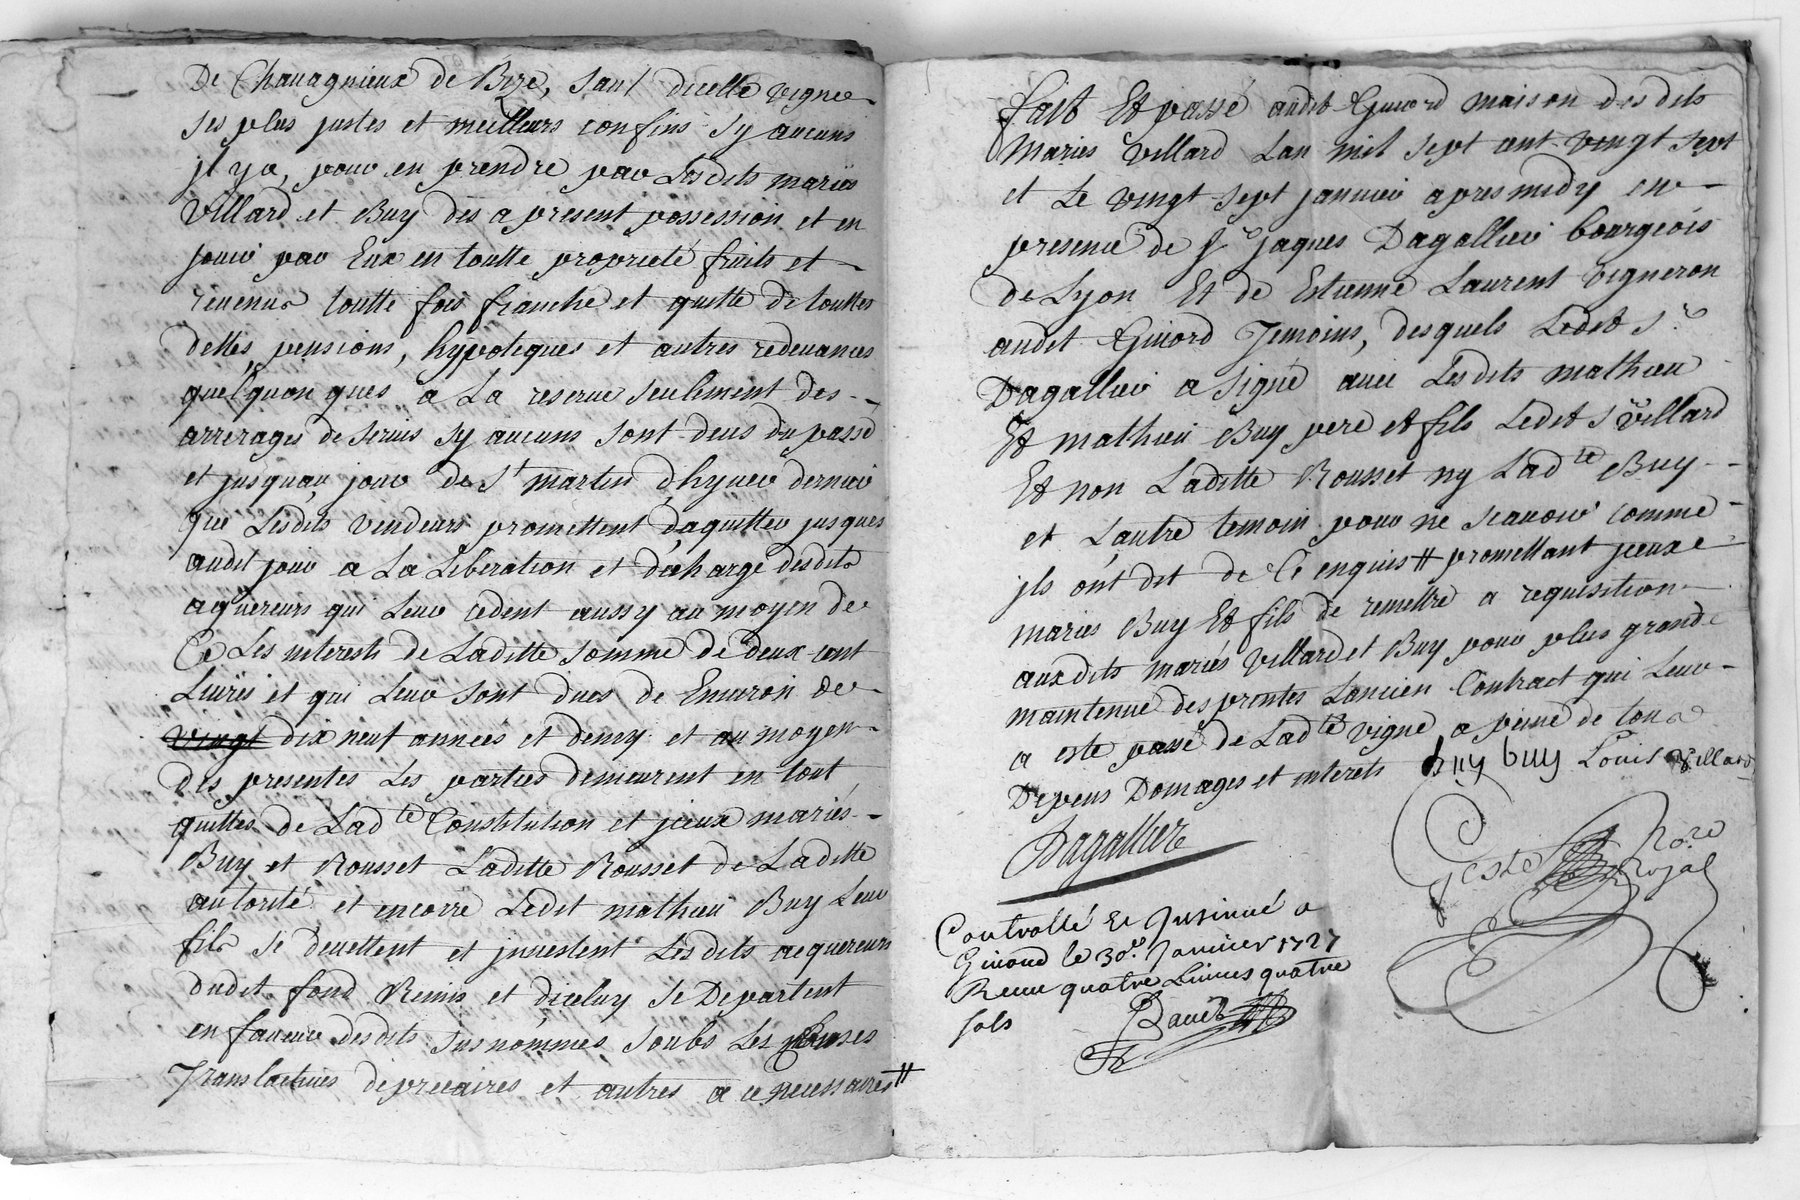 De Chauagnieux de Bize, sauf dicelle vigne
ses plus justes et meilleurs confins sy aucuns
jl ya, pour en prendre par Lesdits mariés
Villard et Buy dès a present possession et en
jouir par Eux en toutte proprieté fruits et
reuenus toutte fois franche et quitte de touttes
dettes, pensions, hypoteques et autres redeuances
quelquonques a La reserue seulement des
arrerages de seruis sy aucuns sont deus du passé
et jusquau jour de St martin dhyuer dernier
que Lesdits vendeurs promettent daquitter jusques
audit jour a La Liberation et décharge desdits
aquereurs qui Leur cedent aussy au moyen de
Ce Les interests de Laditte somme de deux cent
Liures et qui Leur sont dues de Enuiron de
vingt dix neuf années et demy et au moyen
des presentes Les parties demeurent en tout
quittes de Ladte Constitution et jceux mariés
Buy et Rousset Laditte Rousset de Laditte
autorité et encorre Ledit mathieu Buy Leur
fils se deuettent et jnuestent Lesdits acquereurs
dudit fond Remis et diceluy se Departent
en faueur desdits susnommés soubs Les Clauses
Translatiues de precaires et autres a ce necessaires #
fait Et passé audit Giuord maison desdits
Mariés Villard Lan mil sept cent vingt sept
et Le vingt sept januier apres midy en
presence de Sr Jaques Dagallier bourgeois
de Lyon Et de Estienne Laurent vigneron
audit Giuord Temoins, desquels Ledit Sr
Dagallier a signé auec Lesdits mathieu
Et mathieu Buy pere et fils Ledit Sr Villard
Et non Laditte Rousset ny Ladte Buy
et Lautre temoin pour ne scauoir comme
jls ont dit de Ce enquis # promettant jceux
mariés Buy Et fils de remettre a requisition
auxdits mariés Villard et Buy pour plus grande
maintenue des prentes Lancien Contract qui Leur
a este passé de Ladte vigne a peine de tous
Depens Domages et interets buy buy Louis Villard
Dagallier
Geste Nore Royal
Controllé Et Insinué a
Giuord le 30e Januier 1727
Receu quatre Liures quatre
sols